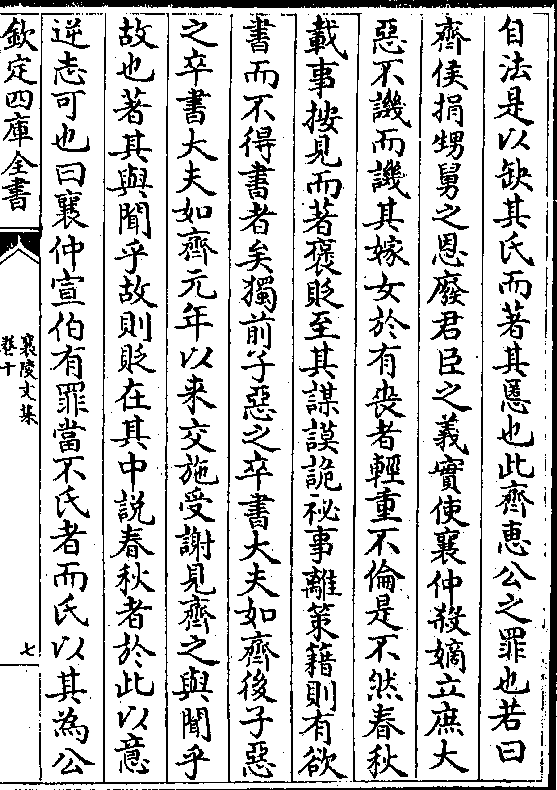 自法是以缺其氏而著其慝也此齊惠公之罪也若曰
齊侯捐甥舅之恩廢君臣之義實使襄仲殺嫡立庶大
惡不譏而譏其嫁女於有喪者輕重不倫是不然春秋
載事按見而著褒貶至其謀謨詭祕事離策籍則有欲
書而不得書者矣獨前子惡之卒書大夫如齊後子惡
之卒書大夫如齊元年以来交施受謝見齊之與聞乎
故也著其與聞乎故則貶在其中説春秋者於此以意
逆志可也曰襄仲宣伯有罪當不氏者而氏以其為公
欽定四庫全書
襄陵文集
卷十
七